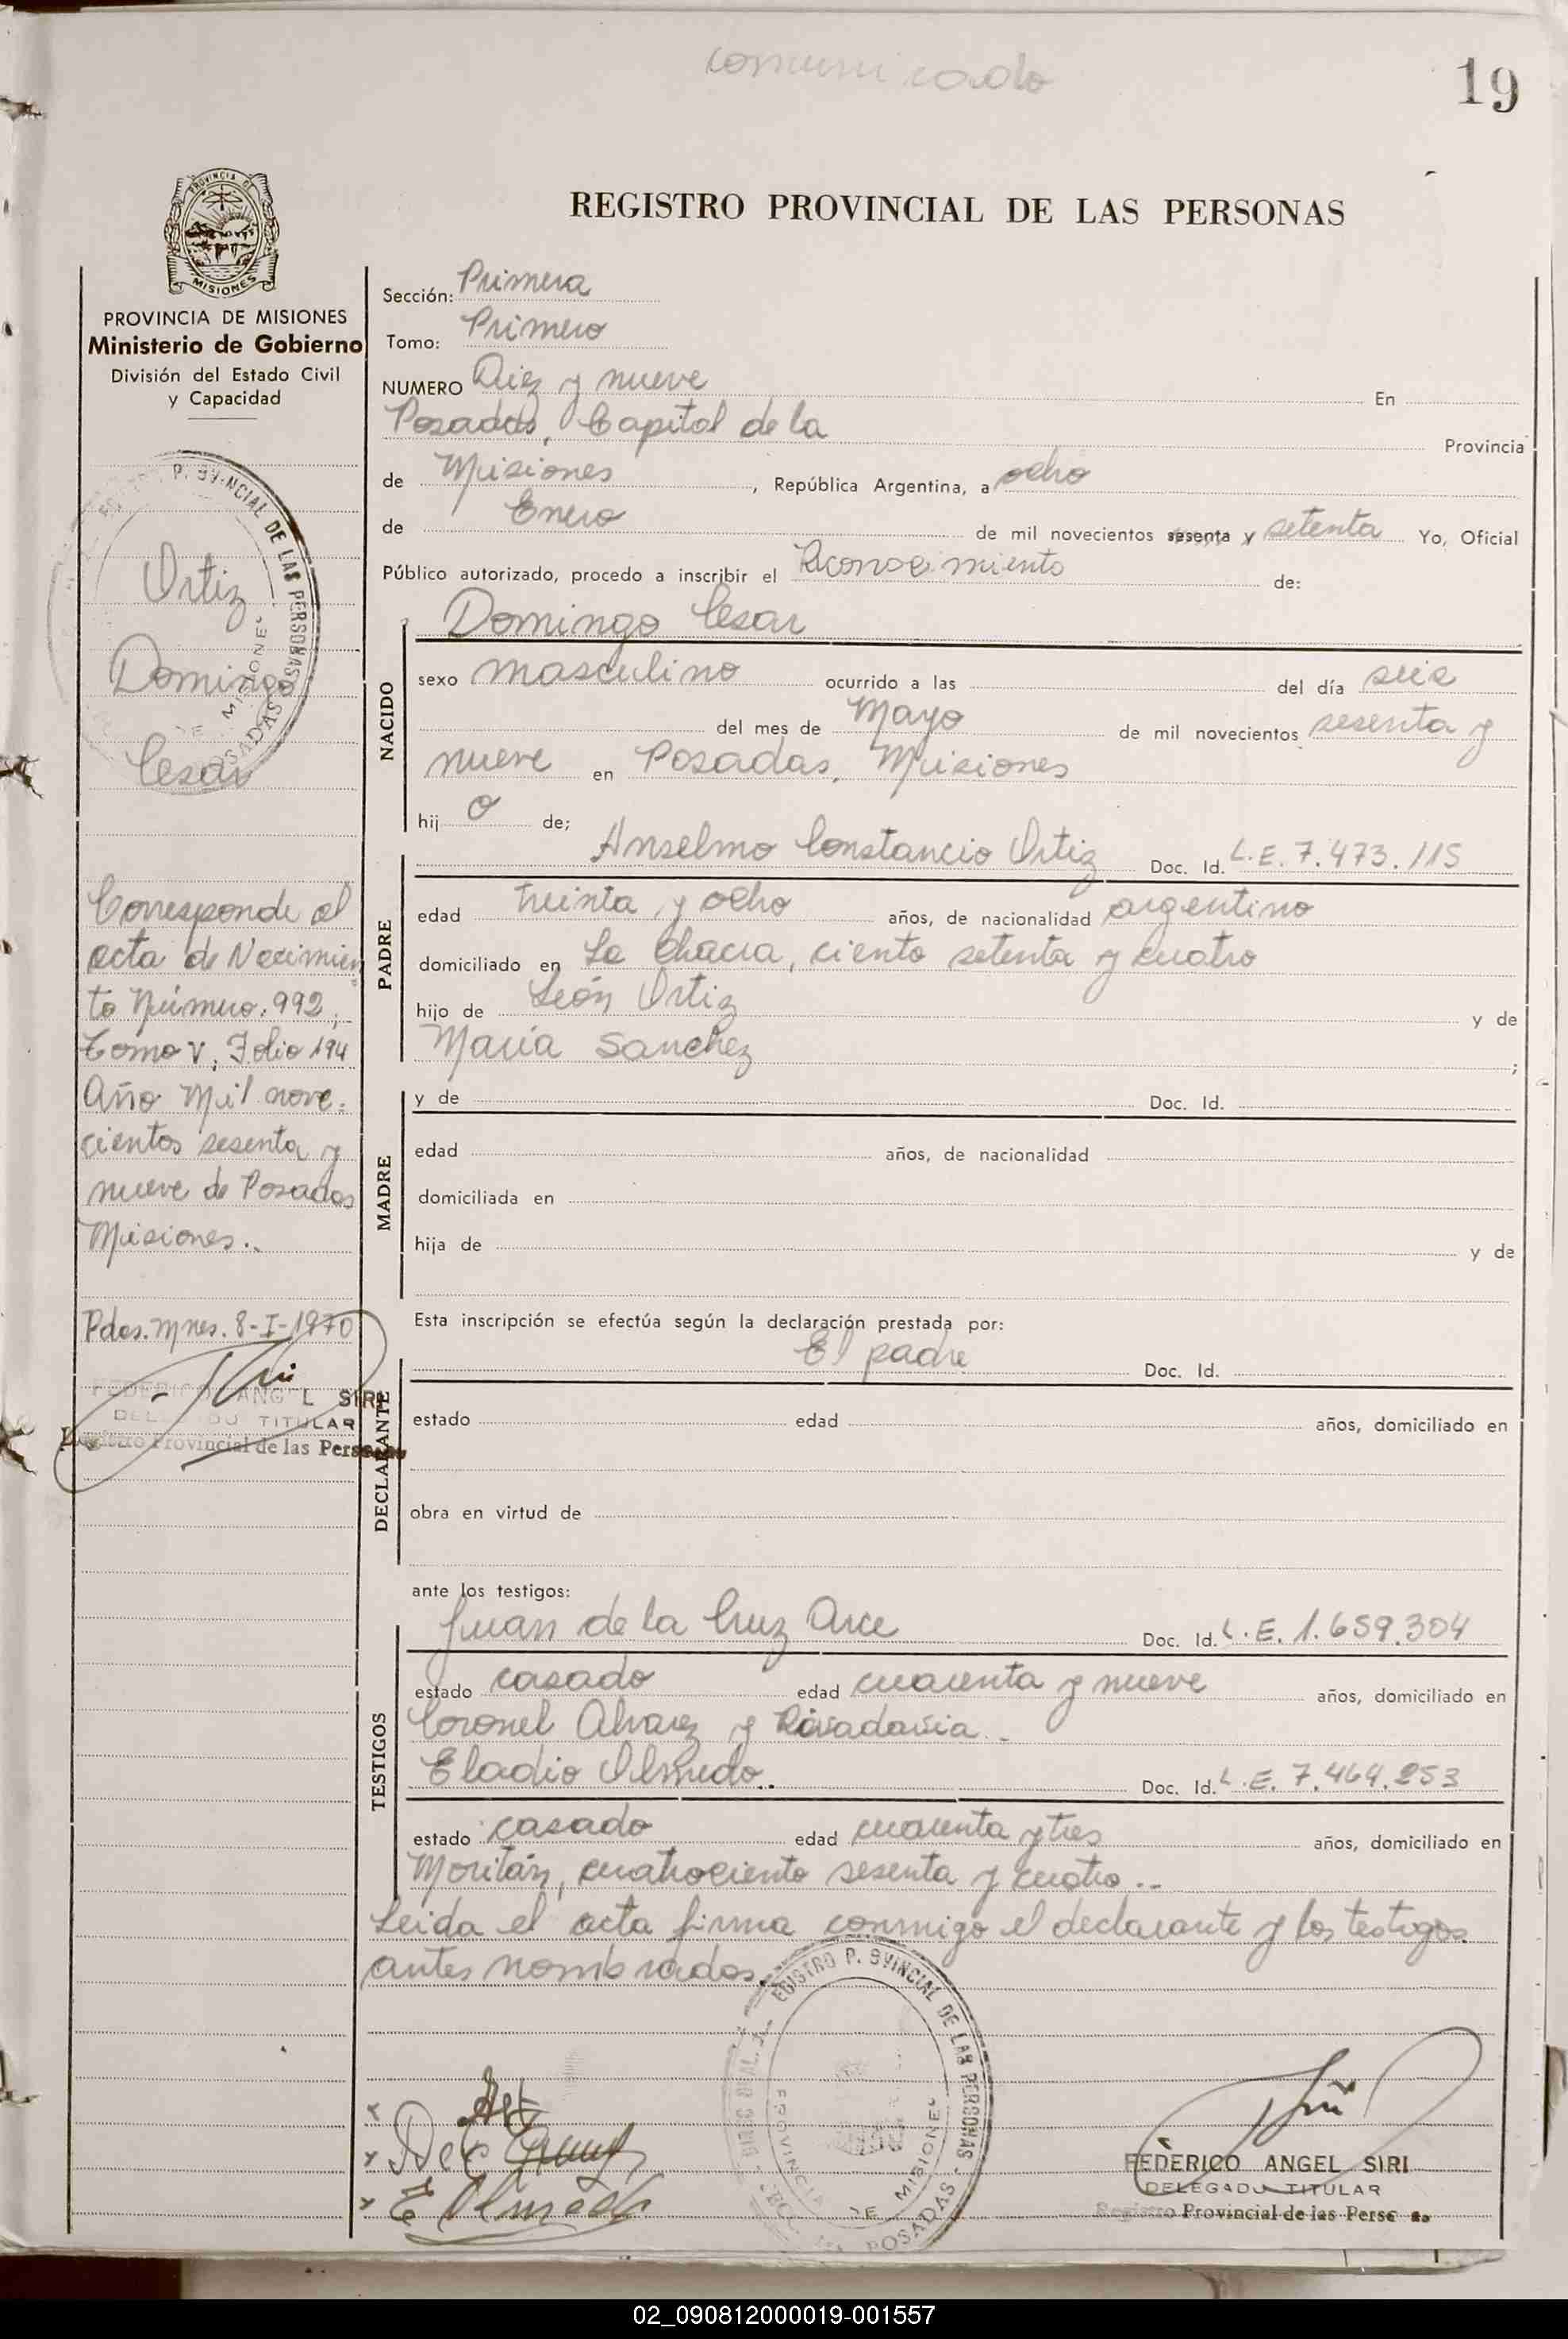 comunicado
19
PROVINCIA DE
MISIONES
REGISTRO PROVINCIAL DE LAS PERSONAS
PROVINCIA DE MISIONES
Ministerio de Gobierno
División del Estado Civil
y Capacidad
Ortiz
Domingo
Cesar
Corresponde al
acta de Nacimien
to Número. 992,
Tomo V, Folio 194
Año Mil nove.
cientos sesenta y
nueve de Posadas
Misiones..
Pdas. Mnes. 8-I-1970
FEDERICO ANGEL SIRI
DELEGADO TITULAR
Registro Provincial de las Personas
Sección: Primera
Tomo: Primero
NUMERO Diez y nueve En
Posadas, Capital de la Provincia
de Misiones, República Argentina, a ocho
de Enero de mil novecientos sesenta y setenta Yo, Oficial
Público autorizado, procedo a inscribir el Reconocimiento de:
NACIDO
Domingo Cesar
sexo masculino ocurrido a las del día seis
del mes de Mayo de mil novecientos sesenta y
nueve en Posadas, Misiones
hij o de;
PADRE
Anselmo Constancio Ortiz Doc. Id. L.E. 7.473.115
edad treinta y ocho años, de nacionalidad argentino
domiciliado en La Chacra, ciento setenta y cuatro
hijo de León Ortiz y de
María Sanchez ;
MADRE
y de Doc. Id.
edad años, de nacionalidad
domiciliada en
hija de y de
Esta inscripción se efectúa según la declaración prestada por:
DECLARANTE
El padre Doc. Id.
estado edad años, domiciliado en
obra en virtud de
ante los testigos:
TESTIGOS
Juan de la Cruz Arce Doc. Id. L.E. 1.659.304
estado casado edad cuarenta y nueve años, domiciliado en
Coronel Alvarez y Rivadavia..
Eladio Olmedo.. Doc. Id. L.E. 7.464.253
estado casado edad cuarenta y tres años, domiciliado en
Moritán, cuatrociento sesenta y cuatro..
Leida el acta firma conmigo el declarante y los testigos
antes nombrados.
E Olmedo
REGISTRO PROVINCIAL DE LAS PERSONAS
PROVINCIA DE MISIONES
POSADAS
FEDERICO ANGEL SIRI
DELEGADO TITULAR
Registro Provincial de las Perso
02_090812000019-001557